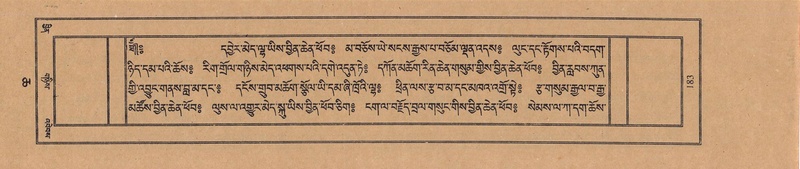 དབྱེར་མེད་ལྷ་ཡིས་བྱིན་ཆེན་ཕོབ༔ མ་བཅོས་ཡེ་སངས་རྒྱས་པ་བཅོམ་ལྡན་འདས༔ ལུང་དང་རྟོགས་པའི་བདག་
ཉིད་དམ་པའི་ཆོས༔ རིག་གྲོལ་གཉིས་མེད་འཕགས་པའི་དགེ་འདུན་ཏེ༔ དཀོན་མཆོག་རིན་ཆེན་གསུམ་གྱིས་བྱིན་ཆེན་ཕོབ༔ བྱིན་རླབས་ཀུན་
གྱི་འབྱུང་གནས་བླ་མ་དང་༔ དངོས་གྲུབ་མཆོག་སྩོལ་ཡི་དམ་ཞི་ཁྲོའི་ལྷ༔ ཕྲིན་ལས་རྩ་བ་མ་དང་མཁའ་འགྲོ་སྟེ༔ རྩ་གསུམ་རྒྱལ་བ་རྒྱ་
མཚོས་བྱིན་ཆེན་ཕོབ༔ ལུས་ལ་འགྱུར་མེད་སྐུ་ཡིས་བྱིན་ཕོབ་ཅིག༔ ངག་ལ་བརྗོད་བྲལ་གསུང་གིས་བྱིན་ཆེན་ཕོབ༔ སེམས་ལ་ཀ་དག་ཆོས་
183